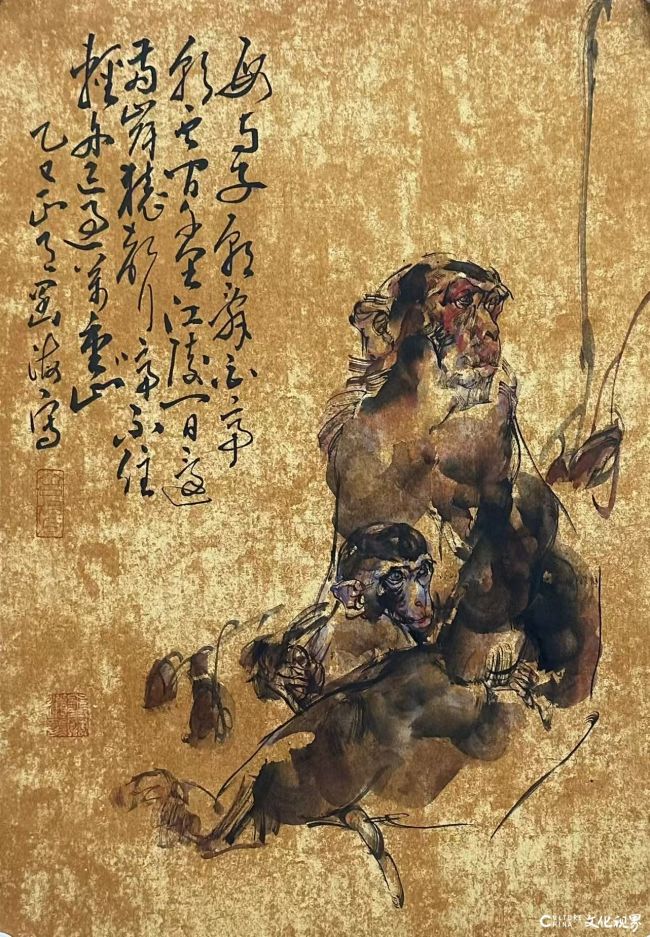 母与子朝辞白帝
彩云间千里江陵一日還
两岸猿声啼不住
轻舟已過萬重山
乙巳正月海写
CULTURE CHINA 文化视界